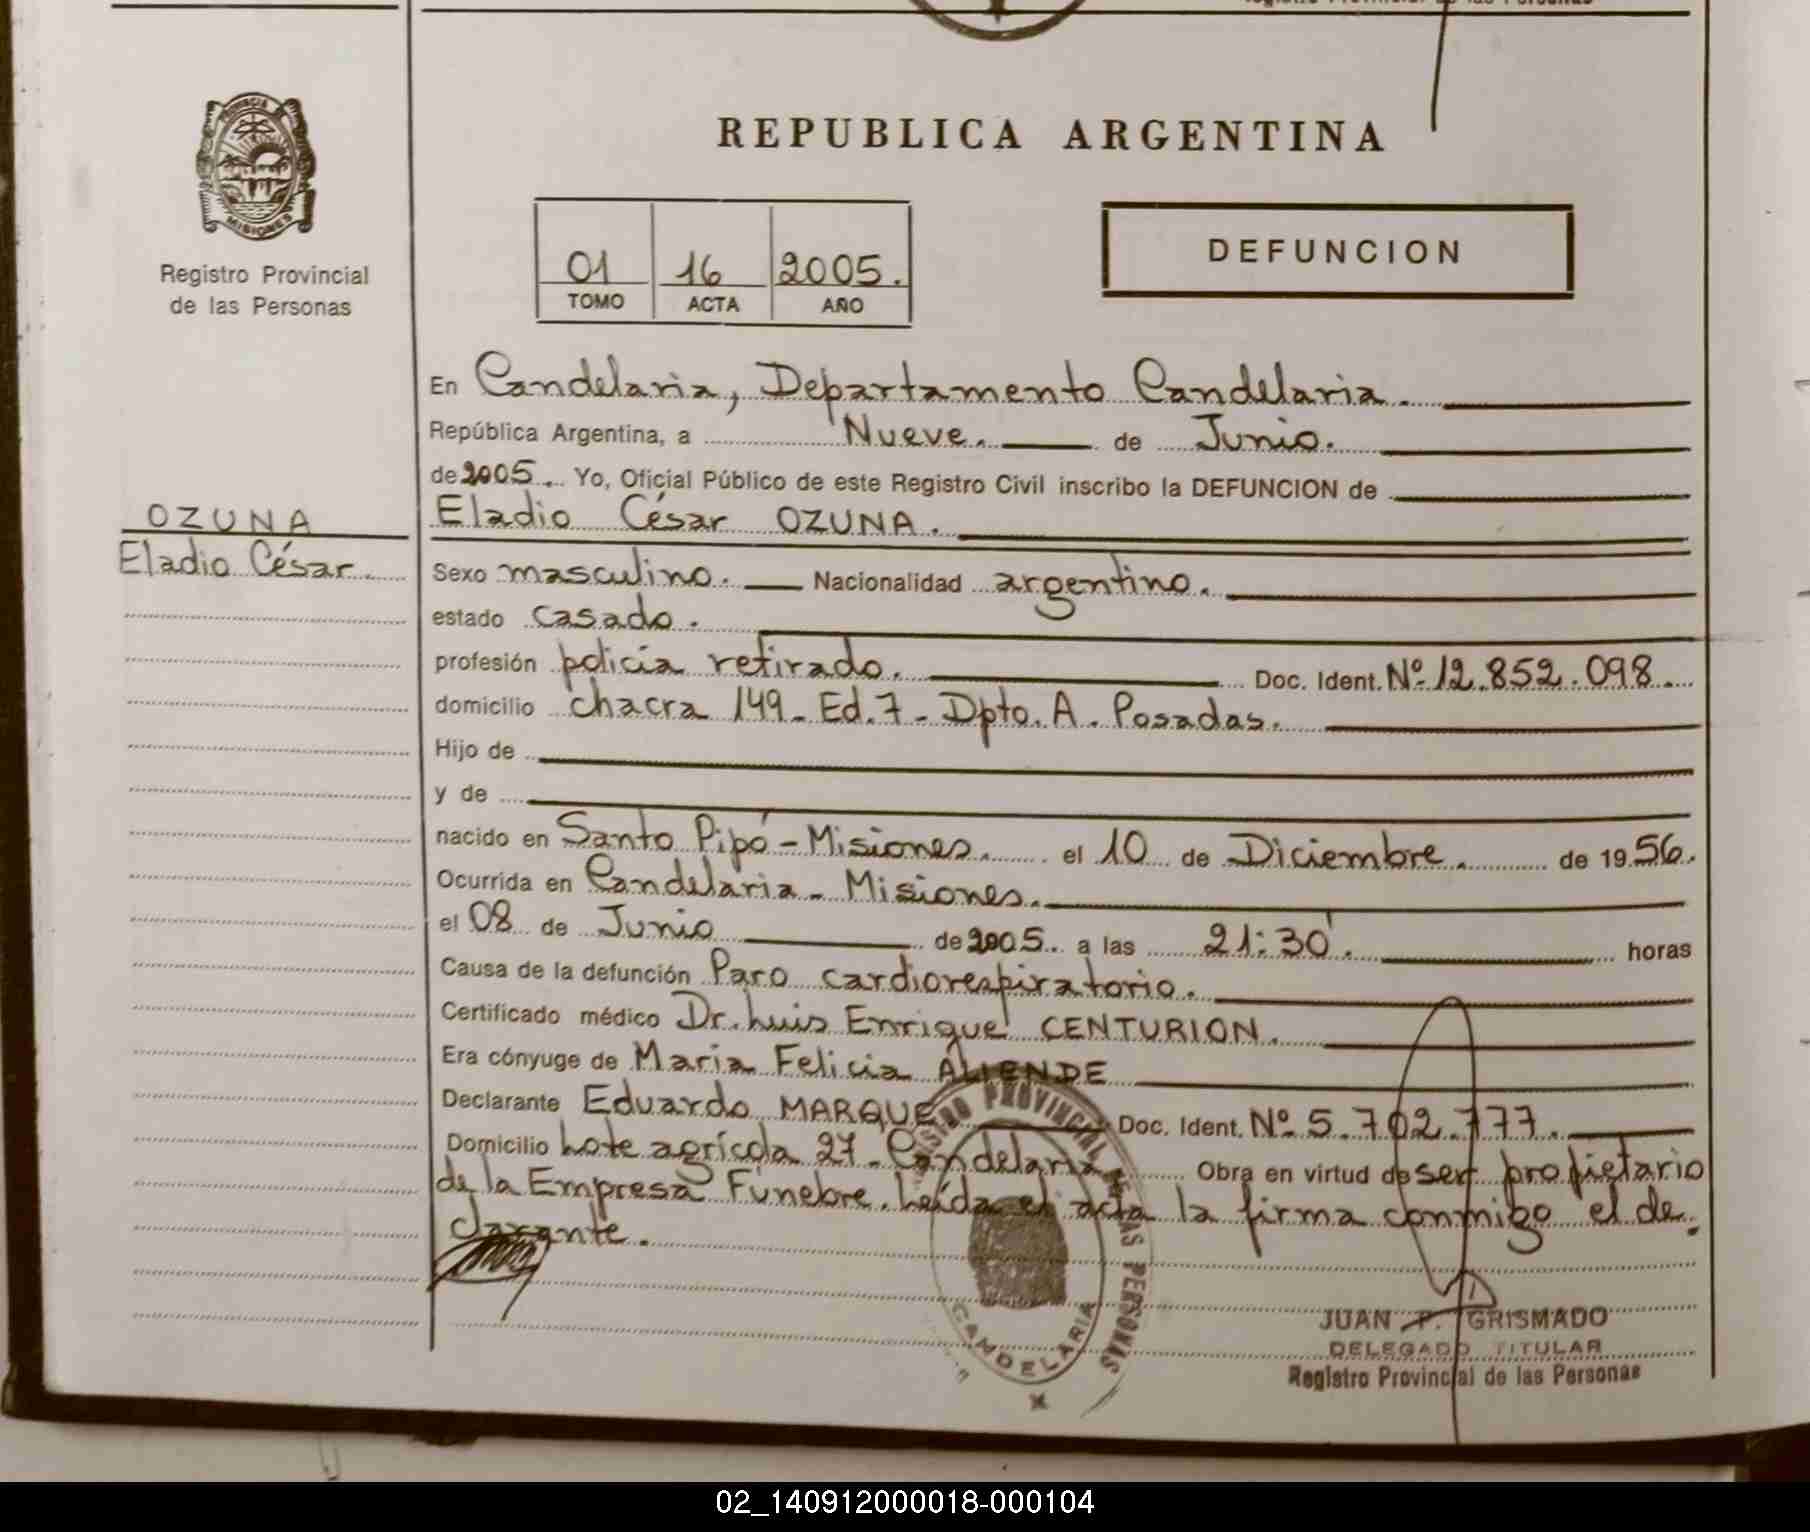 Registro Provincial de las Personas
PROVINCIA DE
MISIONES
Registro Provincial
de las Personas
REPUBLICA ARGENTINA
01 16 2005.
TOMO ACTA AÑO
DEFUNCION
OZUNA
Eladio César.
En Candelaria, Departamento Candelaria.
República Argentina, a Nueve. de Junio.
de 2005. Yo, Oficial Público de este Registro Civil inscribo la DEFUNCION de
Eladio César OZUNA.
Sexo masculino. Nacionalidad argentino.
estado casado.
profesión policía retirado. Doc. Ident. Nº 12.852.098.
domicilio chacra 149- Ed. 7- Dpto. A. Posadas.
Hijo de
y de
nacido en Santo Pipó-Misiones. el 10 de Diciembre. de 1956.
Ocurrida en Candelaria- Misiones.
el 08 de Junio de 2005. a las 21:30'. horas
Causa de la defunción Paro cardiorespiratorio.
Certificado médico Dr. Luis Enrique CENTURION.
Era cónyuge de Maria Felicia ALIENDE
Declarante Eduardo MARQUE Doc. Ident. Nº 5.702.777.
Domicilio Lote agrícola 27- Candelaria Obra en virtud de ser propietario
de la Empresa Funebre. Leída el acta la firma conmigo el de-
clarante.
REGISTRO PROVINCIAL DE LAS PERSONAS
CANDELARIA
JUAN P. GRISMADO
DELEGADO TITULAR
Registro Provincial de las Personas
02_140912000018-000104